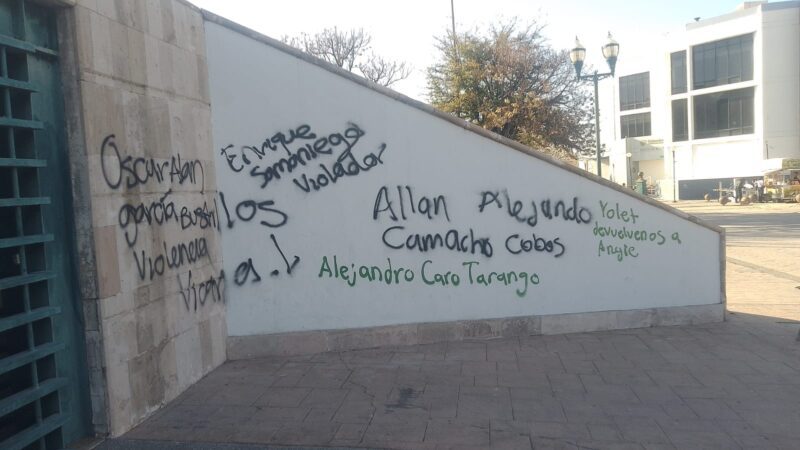 Oscar Alan
garcía Bustillos
Violencia
Vicaria.!
Enrique
Samaniego
Violador
Allan Alejando
Camacho Cobos
Alejandro Caro Tarango
Yolet
devuelvenos a